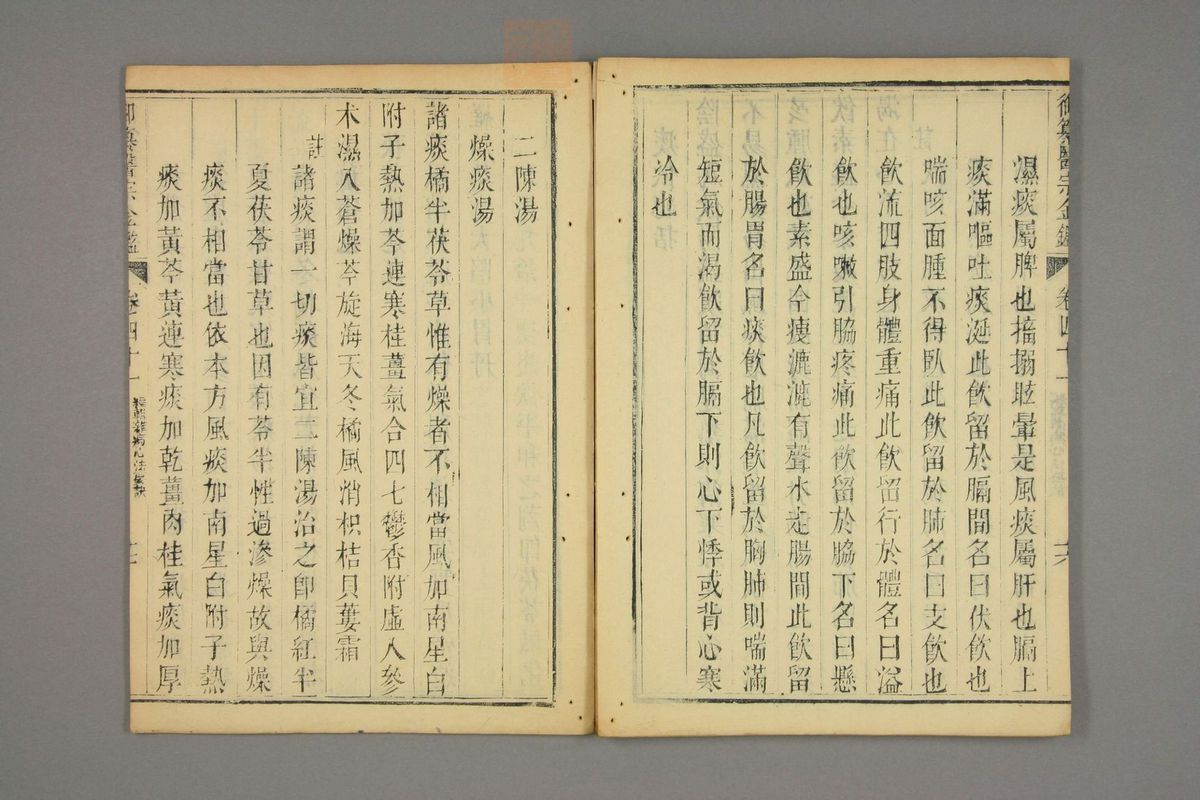 御纂醫宗金鑑 卷四十一
濕痰屬脾也搐搦眩暈是風痰屬肝也膈上
痰滿嘔吐痰涎此飲留於膈間名曰伏飲也
喘咳面腫不得臥此飲留於肺名曰支飲也
飲流四肢身體重痛此飲留行於體名曰溢
飲也咳嗽引脇疼痛此飲留於脇下名曰懸
飲也素盛今瘦漉漉有聲水走腸間此飲留
於腸胃名曰痰飲也凡飲留於胸肺則喘滿
短氣而渴飲留於膈下則心下悸或背心寒
冷也
二陳湯
燥痰湯
諸痰橘半茯苓草惟有燥者不相當風加南星白
附子熱加芩連寒桂薑氣合四七鬱香附虛人參
朮濕入蒼燥芩旋海天冬橘風悄枳桔貝蔞霜
註 諸痰謂一切痰皆宜二陳湯治之卽橘紅半
夏茯苓甘草也因有苓半性過滲燥故與燥
痰不相當也依本方風痰加南星白附子熱
痰加黃芩黃連寒痰加乾薑肉桂氣痰加厚
御纂醫宗金鑑 卷四十一 雜病心法要訣